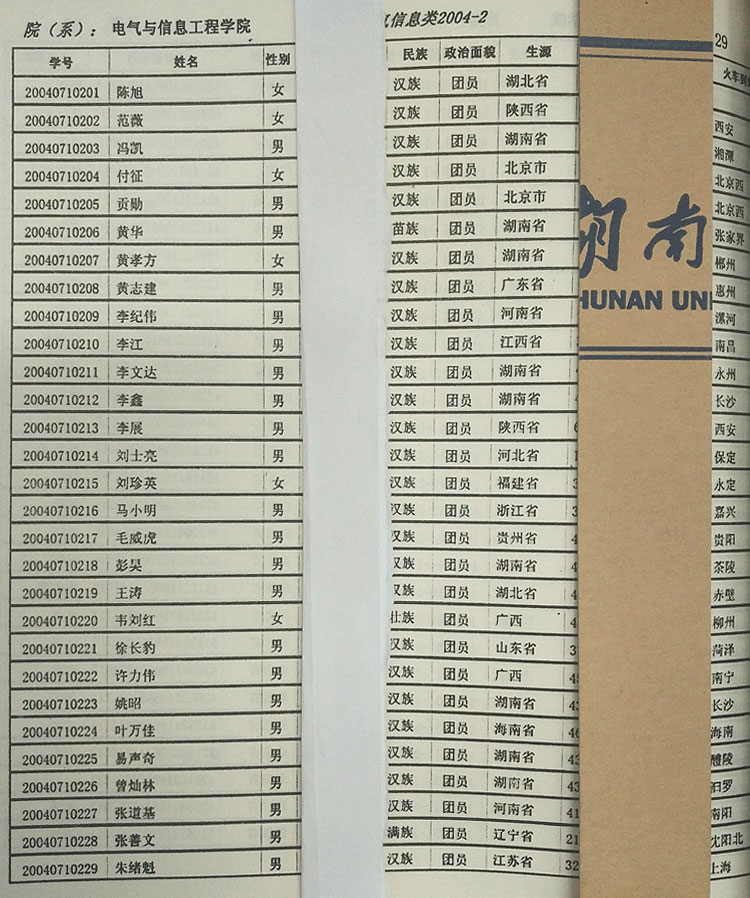 院（系）： 电气与信息工程学院 气信息类2004-2 29
学号 姓名 性别 民族 政治面貌 生源 火车到
20040710201 陈旭 女 汉族 团员 湖北省
20040710202 范薇 女 汉族 团员 陕西省 西安
20040710203 冯凯 男 汉族 团员 湖南省 湘潭
20040710204 付征 女 汉族 团员 北京市 北京西
20040710205 贡勋 男 汉族 团员 北京市 北京西
20040710206 黄华 男 苗族 团员 湖南省 张家界
20040710207 黄孝方 女 汉族 团员 湖南省 郴州
20040710208 黄志建 男 汉族 团员 广东省 惠州
20040710209 李纪伟 男 汉族 团员 河南省 漯河
20040710210 李江 男 汉族 团员 江西省 南昌
20040710211 李文达 男 汉族 团员 湖南省 永州
20040710212 李鑫 男 汉族 团员 湖南省 长沙
20040710213 李展 男 汉族 团员 陕西省 西安
20040710214 刘士亮 男 汉族 团员 河北省 保定
20040710215 刘珍英 女 汉族 团员 福建省 3 永定
20040710216 马小明 男 汉族 团员 浙江省 3 嘉兴
20040710217 毛威虎 男 汉族 团员 贵州省 4 贵阳
20040710218 彭昊 男 汉族 团员 湖南省 4 茶陵
20040710219 王涛 男 汉族 团员 湖北省 4 赤壁
20040710220 韦刘红 女 壮族 团员 广西 4 柳州
20040710221 徐长豹 男 汉族 团员 山东省 37 菏泽
20040710222 许力伟 男 汉族 团员 广西 45 南宁
20040710223 姚昭 男 汉族 团员 湖南省 43 长沙
20040710224 叶万佳 男 汉族 团员 海南省 46 海南
20040710225 易声奇 男 汉族 团员 湖南省 43 醴陵
20040710226 曾灿林 男 汉族 团员 湖南省 43 汨罗
20040710227 张道基 男 汉族 团员 河南省 41 南阳
20040710228 张善文 男 满族 团员 辽宁省 21 沈阳北
20040710229 朱绪魁 男 汉族 团员 江苏省 32 上海
湖南
HUNAN UNI